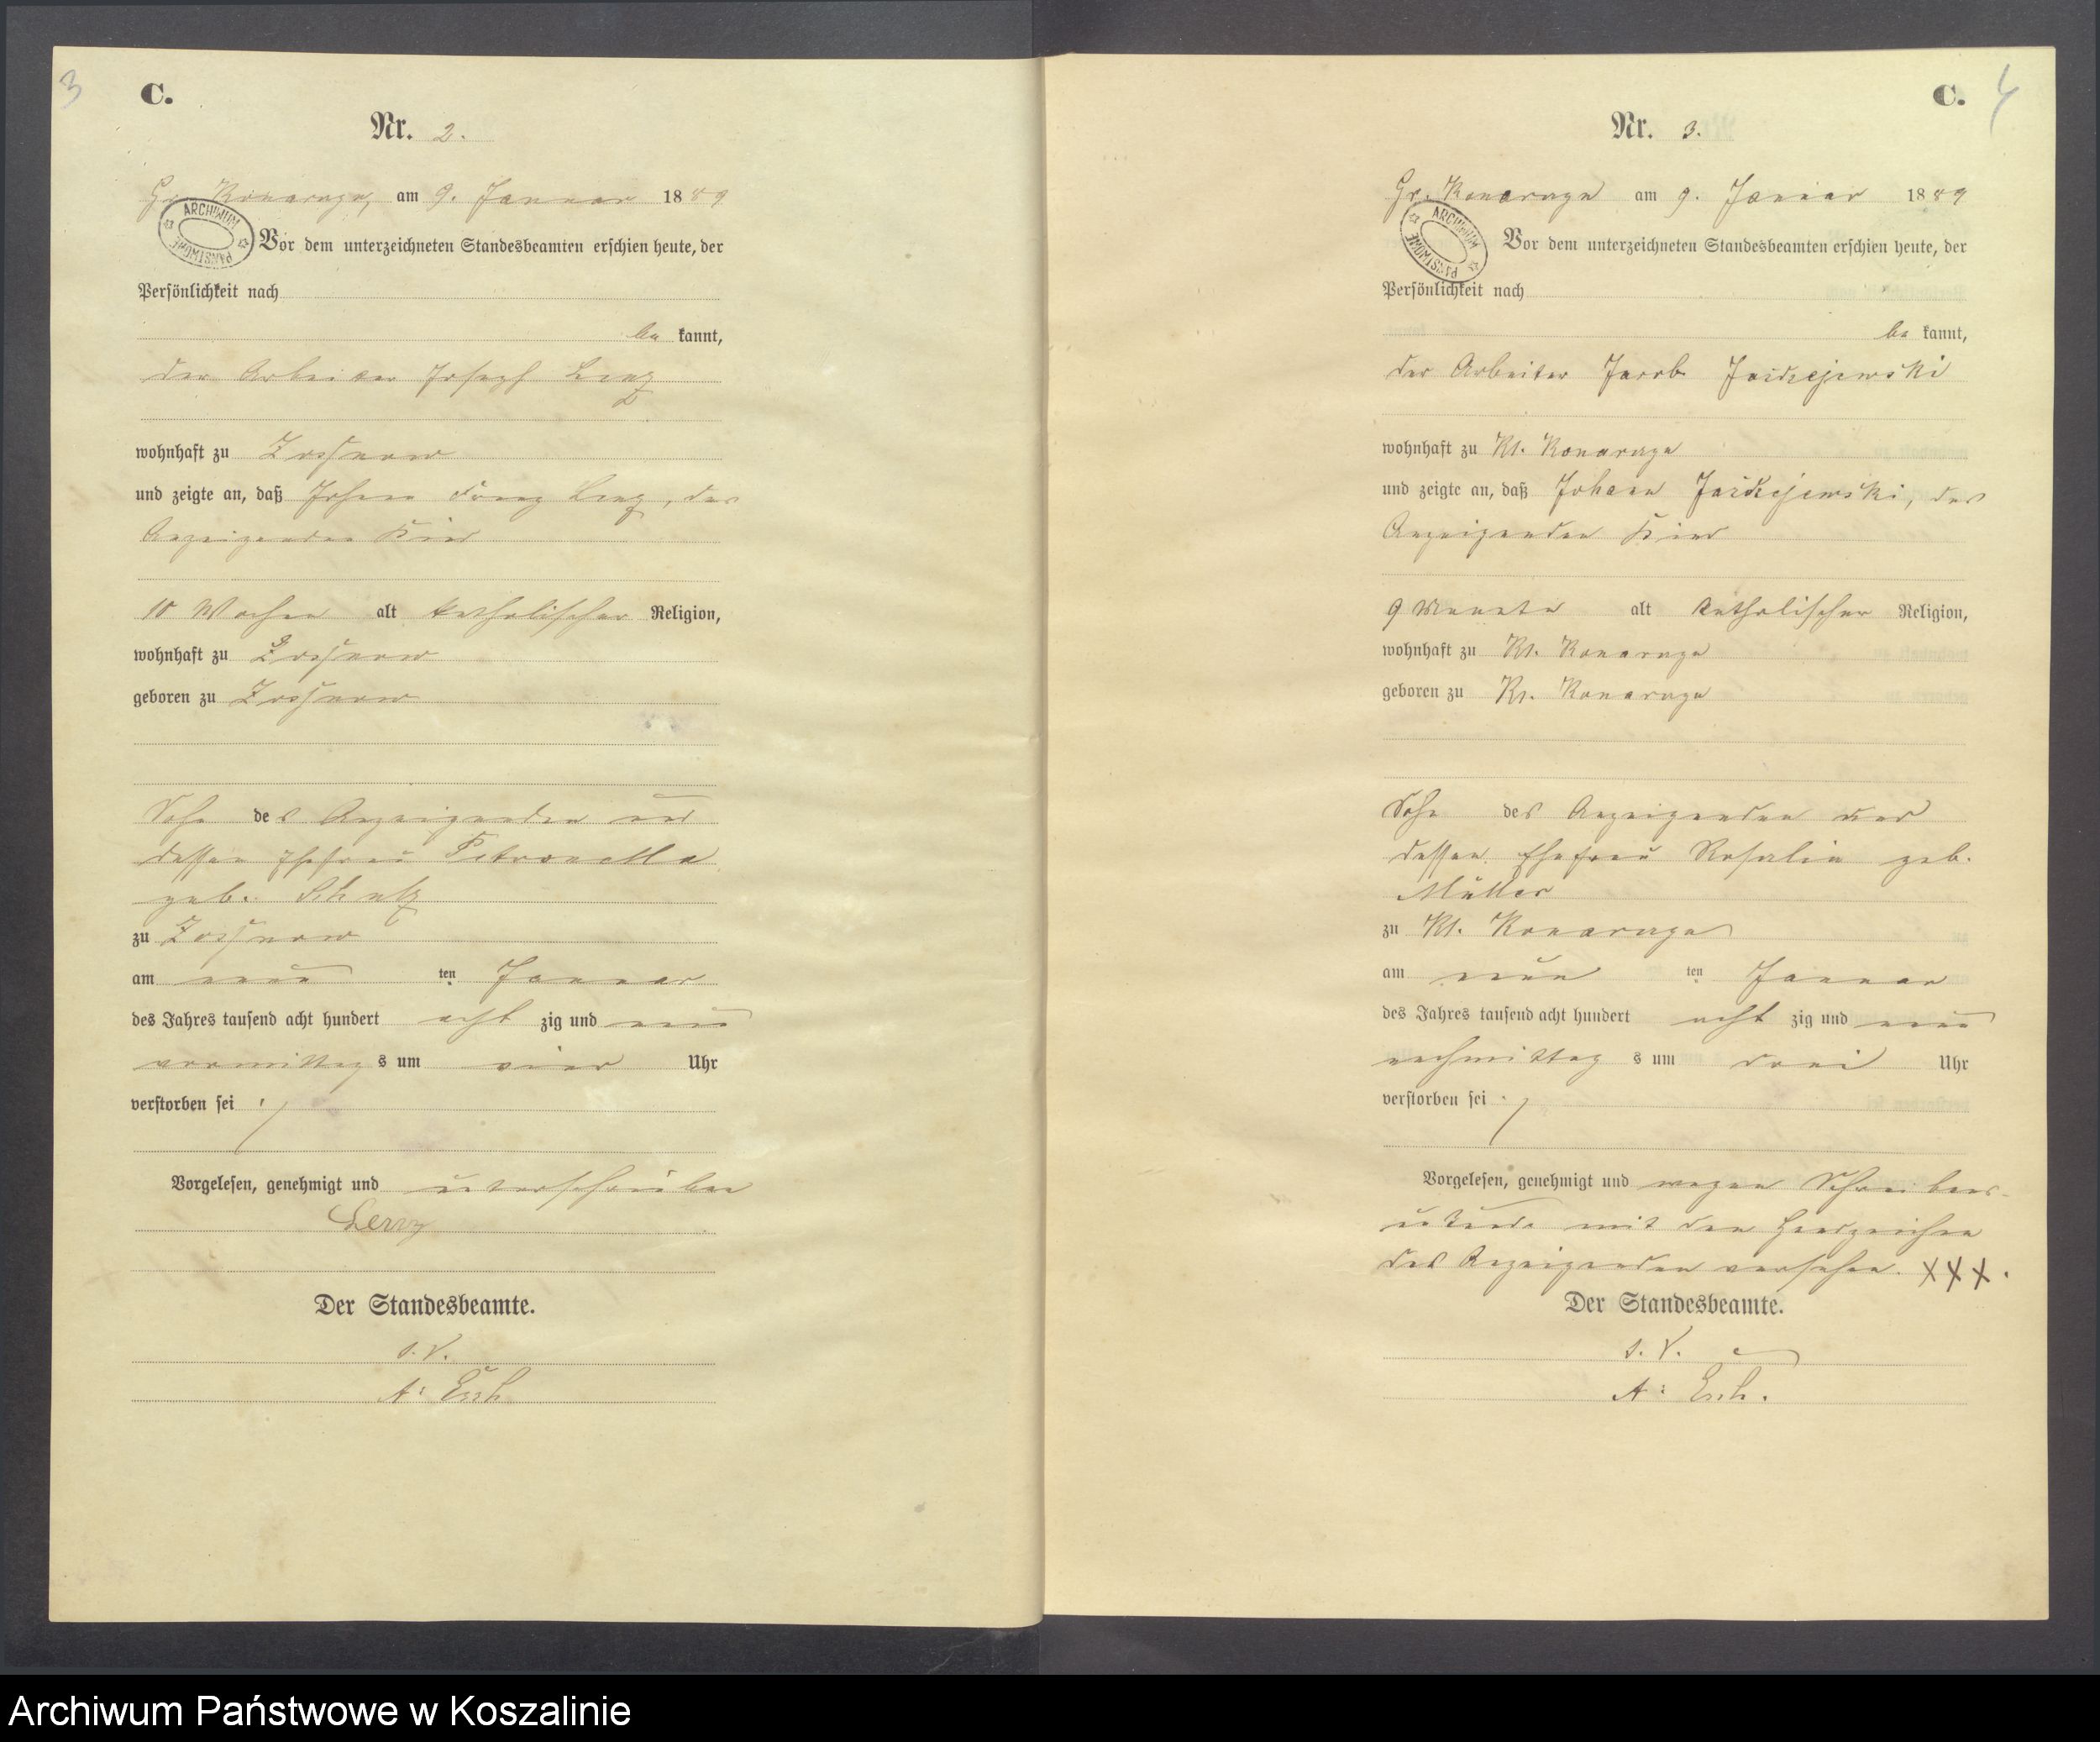 3
C.
Nr. 2.
Gr. Konarzyn, am 9. Januar 1889
ARCHIWUM PAŃSTWOWE
Vor dem unterzeichneten Standesbeamten erschien heute, der
Persönlichkeit nach
be kannt,
der Arbeiter Joseph Lenz
wohnhaft zu Zossnow
und zeigte an, daß Johann Franz Lenz, des
Anzeigenden Kind
10 Wochen alt katholischer Religion,
wohnhaft zu Zossnow
geboren zu Zossnow
Sohn des Anzeigenden und
dessen Ehefrau Petronella
geb. Schulz
zu Zossnow
am neun ten Januar
des Jahres tausend acht hundert acht zig und neun
vormittag s um vier Uhr
verstorben sei
Vorgelesen, genehmigt und unterschrieben
Lenz
Der Standesbeamte.
s. V.
A: Esch
C. 4
Nr. 3.
Gr. Konarzyn am 9. Januar 1889
ARCHIWUM PAŃSTWOWE
Vor dem unterzeichneten Standesbeamten erschien heute, der
Persönlichkeit nach
be kannt,
der Arbeiter Jacob
wohnhaft zu Kl. Konarzyn
und zeigte an, daß Johann des
Anzeigenden Kind
9 Monate alt katholischer Religion,
wohnhaft zu Kl. Konarzyn
geboren zu Kl. Konarzyn
Sohn des Anzeigenden und
dessen Ehefrau Rosalie geb.
Müller
zu Kl. Konarzyn
am neun ten Januar
des Jahres tausend acht hundert acht zig und neun
nachmittag s um drei Uhr
verstorben sei
Vorgelesen, genehmigt und wegen Schreibens-
unkunde mit den Handzeichen
des Anzeigenden versehen. XXX.
Der Standesbeamte.
s. V.
A: Esch.
Archiwum Państwowe w Koszalinie